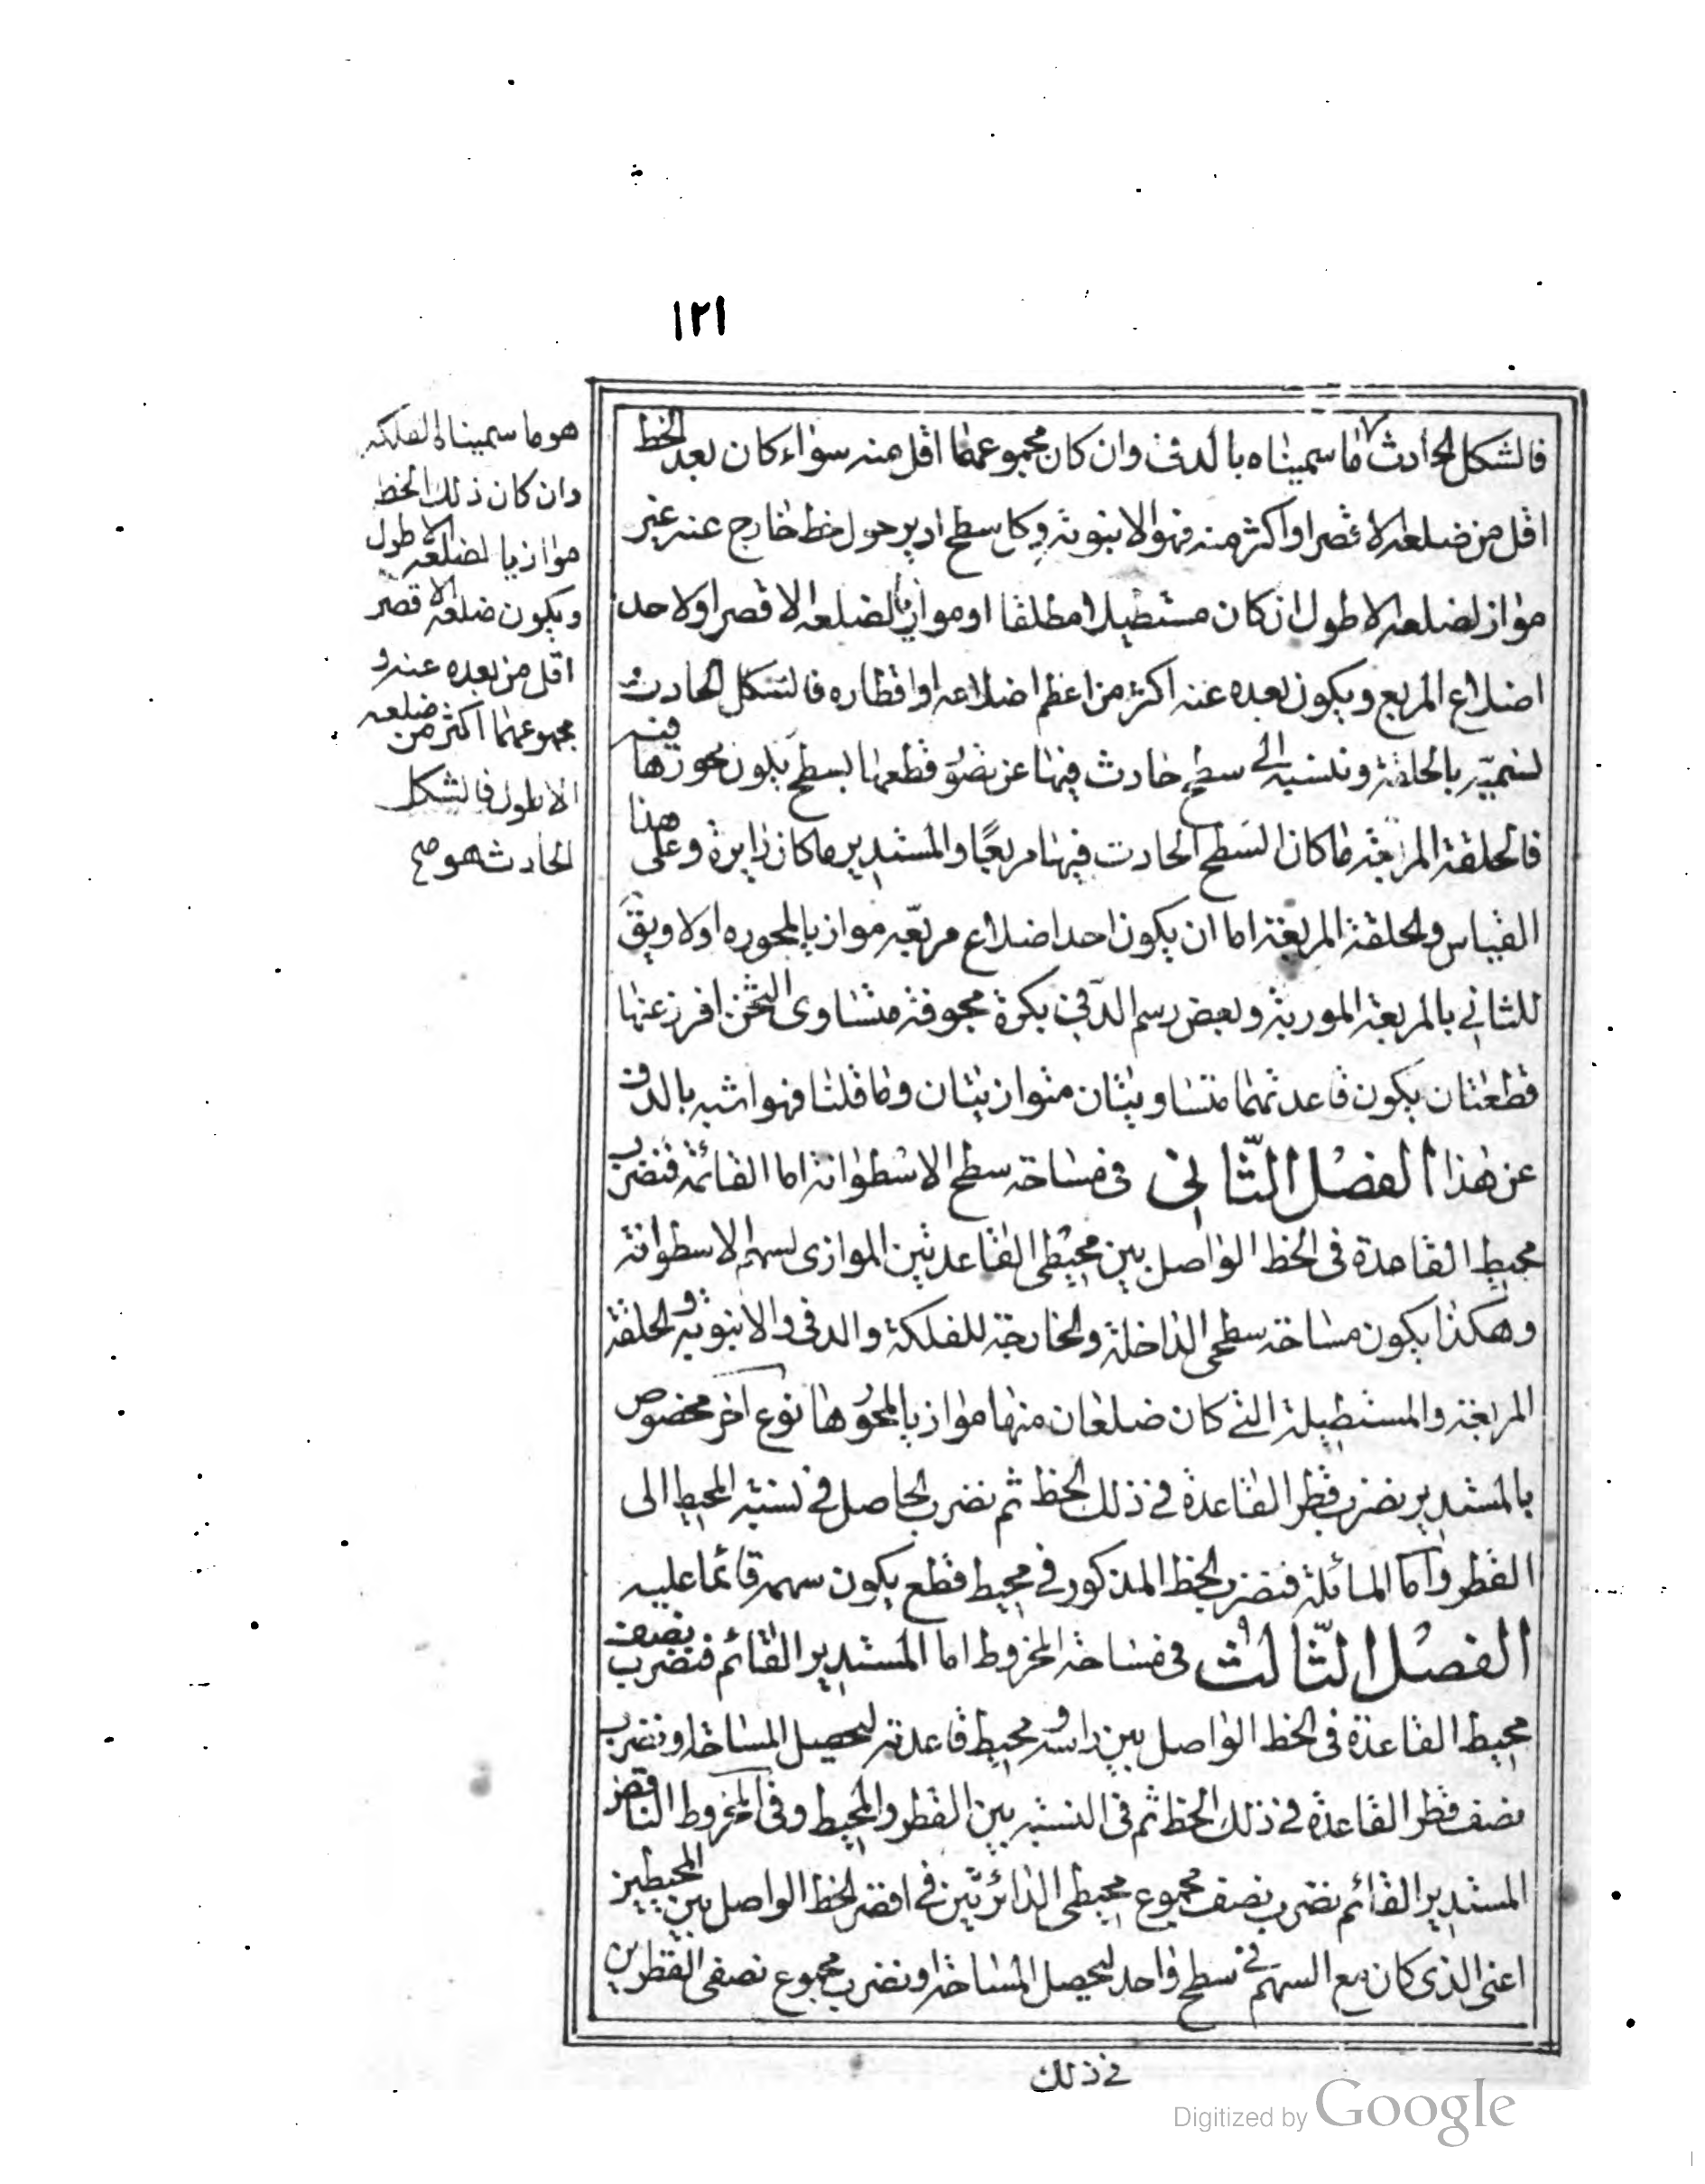 ١٢١
فالشكل الحادث ما سميناه بالدفى وان كان مجموعهما اقل منه سواء كان بعد الخط
اقل من ضلعه الاقصر او اكثر منه فهو الانبوبة وكل سطح ادير حول خط خارج عنه غير
مواز لضلعه الاطول ان كان مستطيلا مطلقا او موازيا لضلعه الاقصر او لاحد
اضلاع المربع ويكون بعده عنه اكثر من اعظم اضلاعه او اقطاره فالشكل الحادث
نسميه بالحلقة وننسبه الى سطح حادث فيها عن قطعها بسطح يكون محورها فيه
فالحلقة المربعة ما كان السطح الحادث فيها مربعا والمستدير ما كان دايرة وعلى هذا
القياس والحلقة المربعة اما ان يكون احد اضلاع مربعه موازيا لمحوره اولا ويق
للثاني بالمربعة الموربة وبعض رسم الدفى بكرة مجوفة متساوى الثخن افرز عنها
قطعتان يكون قاعدتهما متساويتان متوازيتان وما قلنا فهو اشبه بالدف
عن هذا الفصل الثانى فى مساحة سطح الاسطوانة اما القائمة فنضرب
محيط القاعدة فى الخط الواصل بين محيطى القاعدتين الموازى لسهم الاسطوانة
وهكذا يكون مساحة سطحى الداخلة والخارجة للفلكة والدفى والانبوبة والحلقة
المربعة والمستطيلة التى كان ضلعان منها موازيا لمحورها نوع آخر مخصوص
بالمستدير نضرب قطر القاعدة فى ذلك الخط ثم نضرب الحاصل فى نسبة المحيط الى
القطر واما المائلة فنضرب الخط المذكور فى محيط قطع يكون سهمه قائما عليه
الفصل الثالث فى مساحة المخروط اما المستدير القائم فنضرب نصف
محيط القاعدة فى الخط الواصل بين راسه ومحيط قاعدته ليحصل المساحة او نضرب
نصف قطر القاعدة فى ذلك الخط ثم فى النسبة بين القطر والمحيط وفى المخروط الناقص
المستدير القائم نضرب نصف مجموع محيطى الدائرتين فى اقصر الخط الواصل بين المحيطين
اعنى الذى كان مع السهم فى سطح واحد ليحصل المساحة او نضرب مجموع نصفى القطرين
فى ذلك
هو ما سميناه الفلكة
وان كان ذلك الخط
موازيا لضلعه الاطول
ويكون ضلعه الاقصر
اقل من بعده عنه و
مجموعهما اكثر من ضلعه
الاطول فالشكل
الحادث هو صح
Digitized by Google